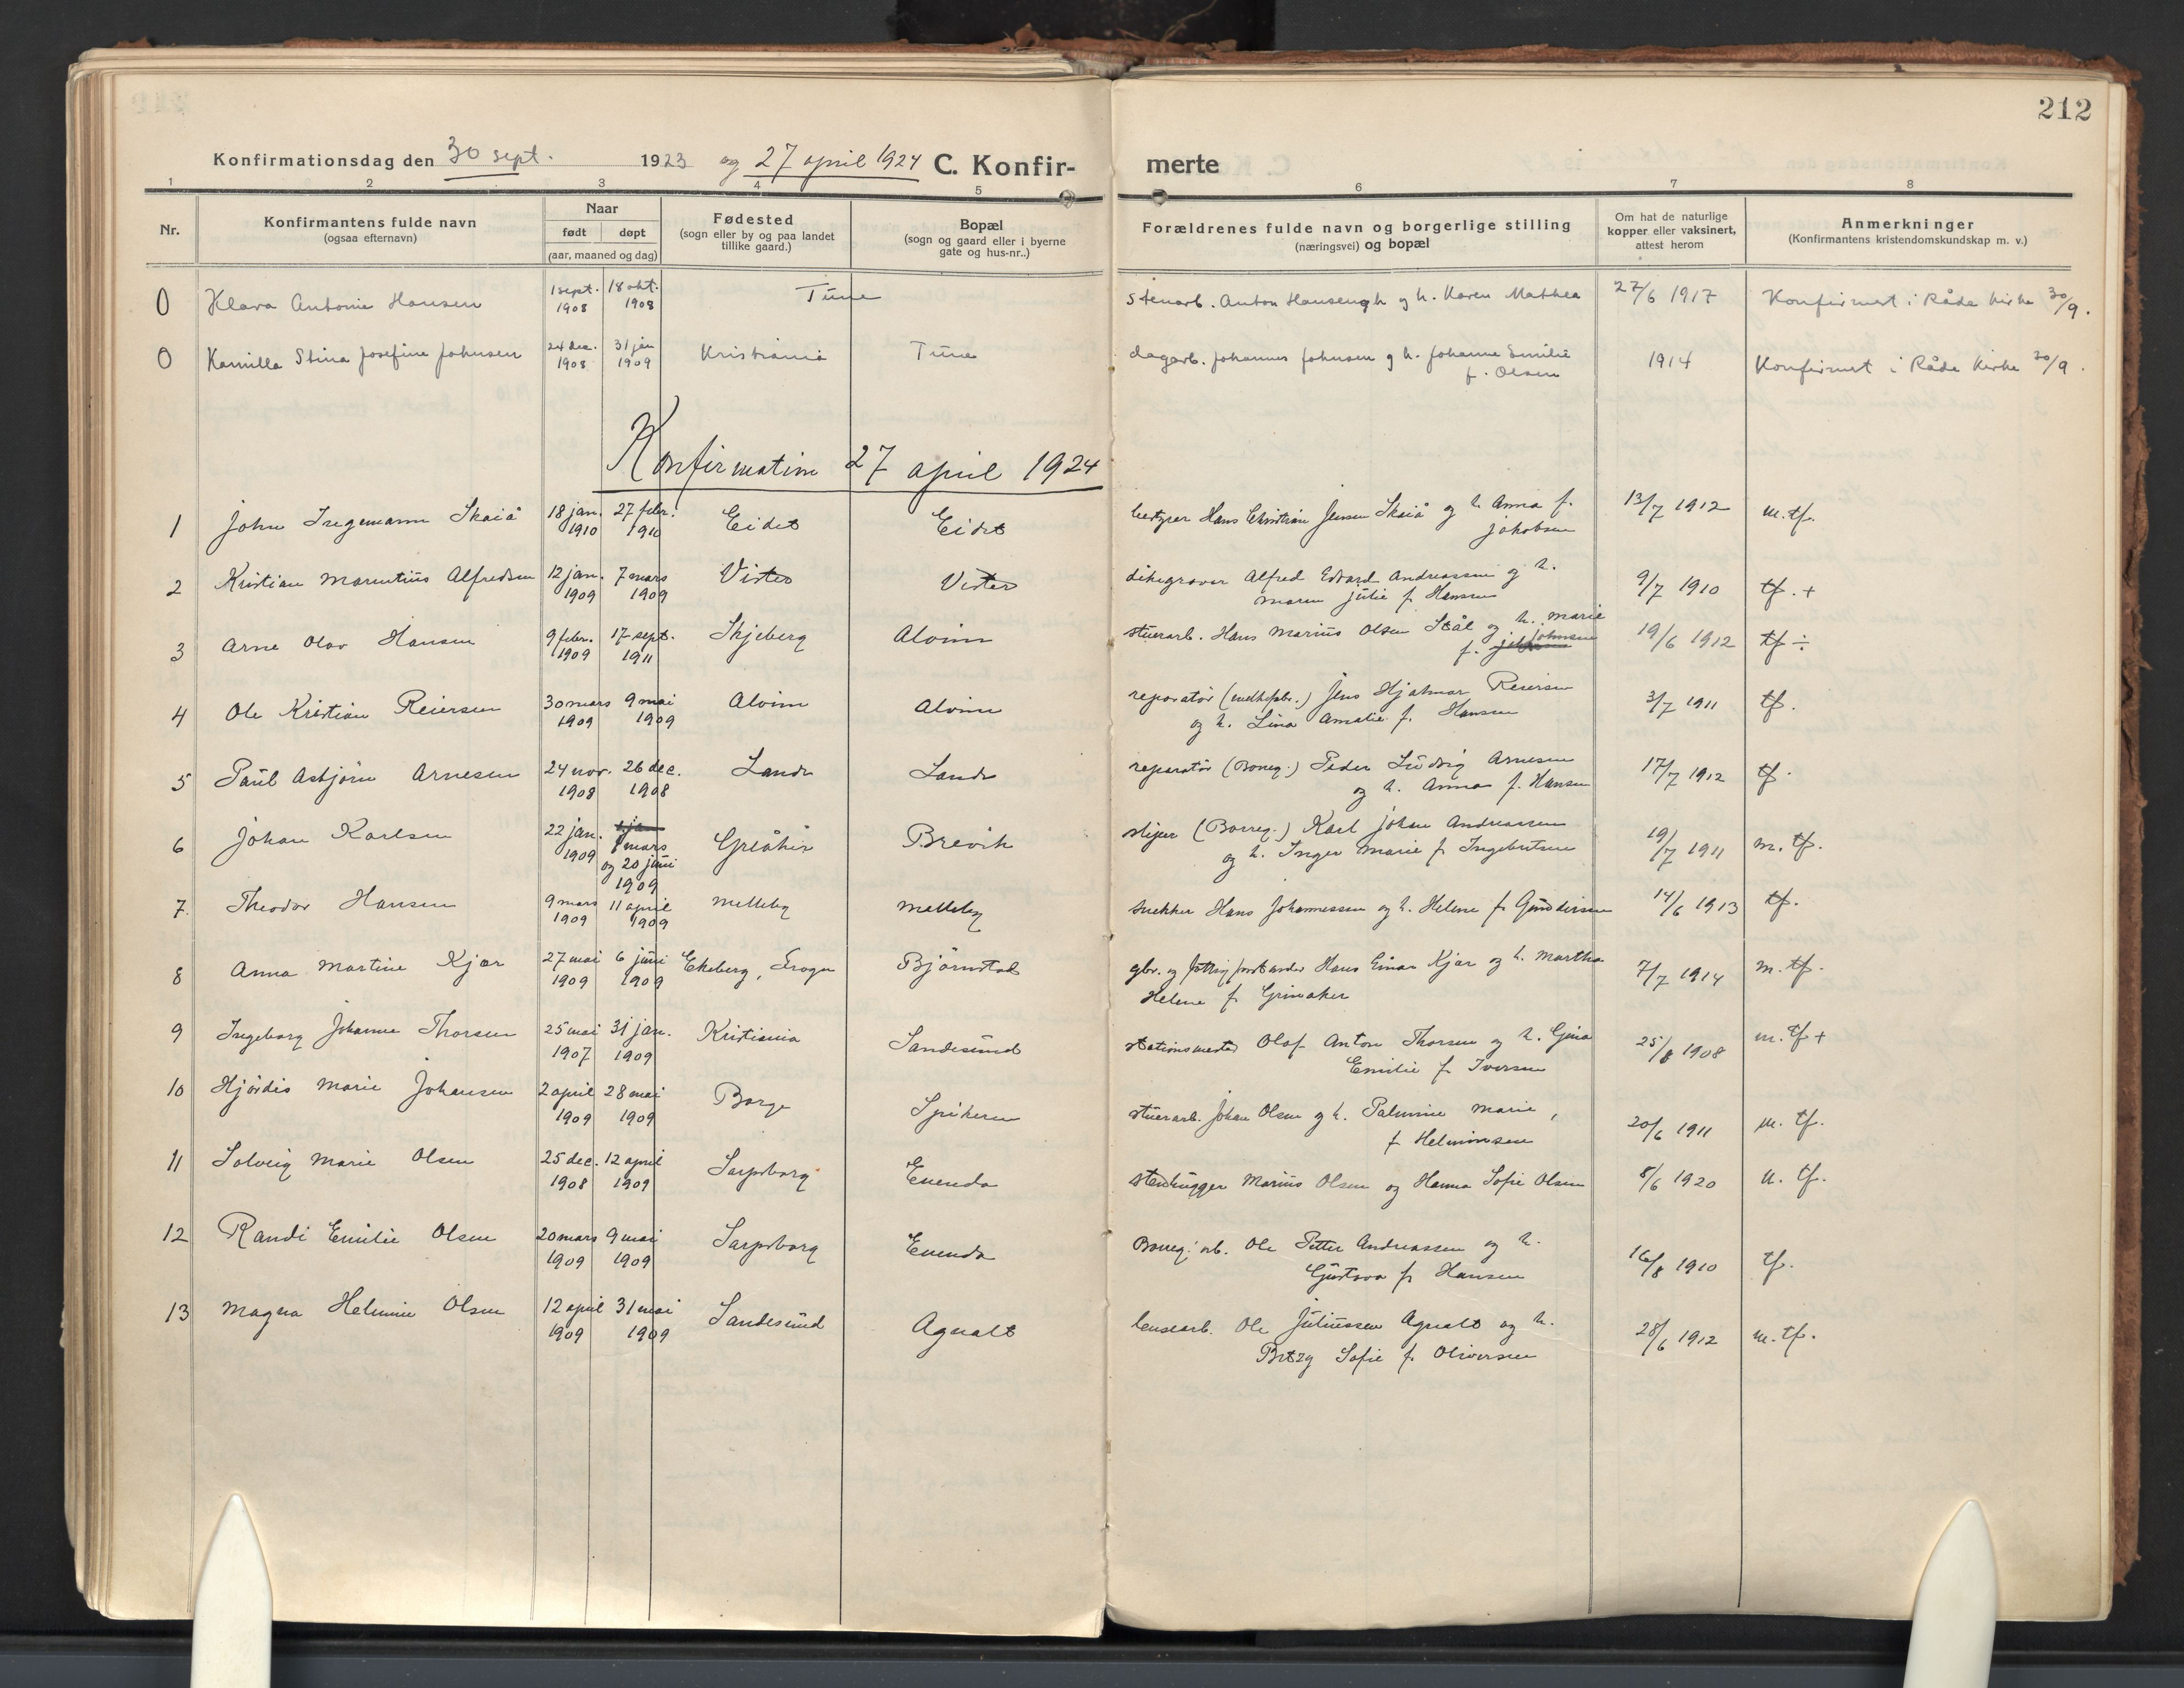 212
Konfirmationsdag den 30 sept. 1923 og 27 april 1924 C. Konfir-
merte
1 2 3 4 5 6 7 8
Nr.
Konfirmantens fulde navn
(ogsaa efternavn)
Naar
født døpt
(aar, maaned og dag)
Fødested
(sogn eller by og paa landet
tillike gaard.)
Bopæl
(sogn og gaard eller i byerne
gate og hus-nr..)
Forældrenes fulde navn og borgerlige stilling
(næringsvei) og bopæl
Om hat de naturlige
kopper eller vaksinert,
attest herom
Anmerkninger
(Konfirmantens kristendomskundskap m. v.)
0 Klara Antonie Hansen 1 sept. 18 okt. Tune Stenarb. Anton Hansen og h. Karen Mathea 27/6 1917 Konfirmert i Råde kirke 30/9.
1908 1908
0 Kamilla Stina Josefine Johnsen 24 dec. 31 jan Kristiania Tune dagarb. Johannes Johnsen og h. Johanne Emilie 1914 Konfirmert i Råde Kirke 30/9.
1908 1909 f. Olsen
Konfirmation 27 april 1924
1 John Ingemann Skaiå 18 jan. 27 febr. Eidet Eidet bestyrer Hans Christian Jensen Skaiå og h. Anna f. 13/7 1912 m. tf.
1910 1910 Jakobsen
2 Kristian Marentius Alfredsen 12 jan. 7 mars Vister Vister dikegraver Alfred Edvard Andreassen og h. 9/7 1910 tf. +
1909 1909 Maren Julie f. Hansen
3 Arne Olav Hansen 9 febr. 17 sept. Skjeberg Alvim stuerarb. Hans Marius Olsen Stål og h. Marie 19/6 1912 tf ÷
1909 1911 f. Johnsen
4 Ole Kristian Reiersen 30 mars 9 mai Alvim Alvim reparatør Jens Hjalmar Reiersen 3/7 1911 tf.
1909 1909 og h. Lina Amalie f. Hansen
5 Paul Asbjørn Arnesen 24 nov. 26 dec. Lande Lande reparatør (Borreg.) Peder Ludvig Arnesen 17/7 1912 tf.
1908 1908 og h. Anna f. Hansen
6 Johan Karlsen 22 jan. 1 jan Greåker Brevik sliper (Borreg.) Karl Johan Andreassen 19/7 1911 m. tf.
1909 1 mars og h. Inger Marie f. Ingebretsen
og 20 juni
1909
7. Theodor Hansen 9 mars 11 april Melleby Melleby snekker Hans Johannessen og h. Helene f. Gundersen 14/6 1913 tf.
1909 1909
8 Anna Martine Kjær 27 mai 6 juni Ekeberg, Frogn Bjørnstad gbr. og fattigforstander Hans Einar Kjær og h. Martha 7/7 1914 m. tf.
1909 1909 Helene f. Grimaker
9 Ingeborg Johanne Thorsen 25 mai 31 jan. Kristiania Sandesund stationsmester Olaf Anton Thorsen og h. Gina 25/8 1908 m. tf +
1907 1909 Emilie f. Iversen
10 Hjørdis Marie Johansen 2 april 28 mai Borge Spikeren stuerarb. Johan Olsen og h. Palmine Marie, 20/6 1911 m. tf.
1909 1909 f. Helmimsen
11 Solveig Marie Olsen 25 dec. 12 april Sarpsborg Enenda Stenhugger Marius Olsen og Hanna Sofie Olsen 8/6 1920 u. tf.
1908 1909
12 Randi Emilie Olsen 20 mars 9 mai Sarpsborg Enenda Borreg. arb. Ole Petter Andreassen og h. 16/8 1910 tf.
1909 1909 Gustava f. Hansen
13 Magna Helmine Olsen 12 april 31 mai Sandesund Agnalt lensearb. Ole Juliussen Agnalt og h. 28/6 1912 m. tf.
1909 1909 Betzy Sofie f. Oliversen